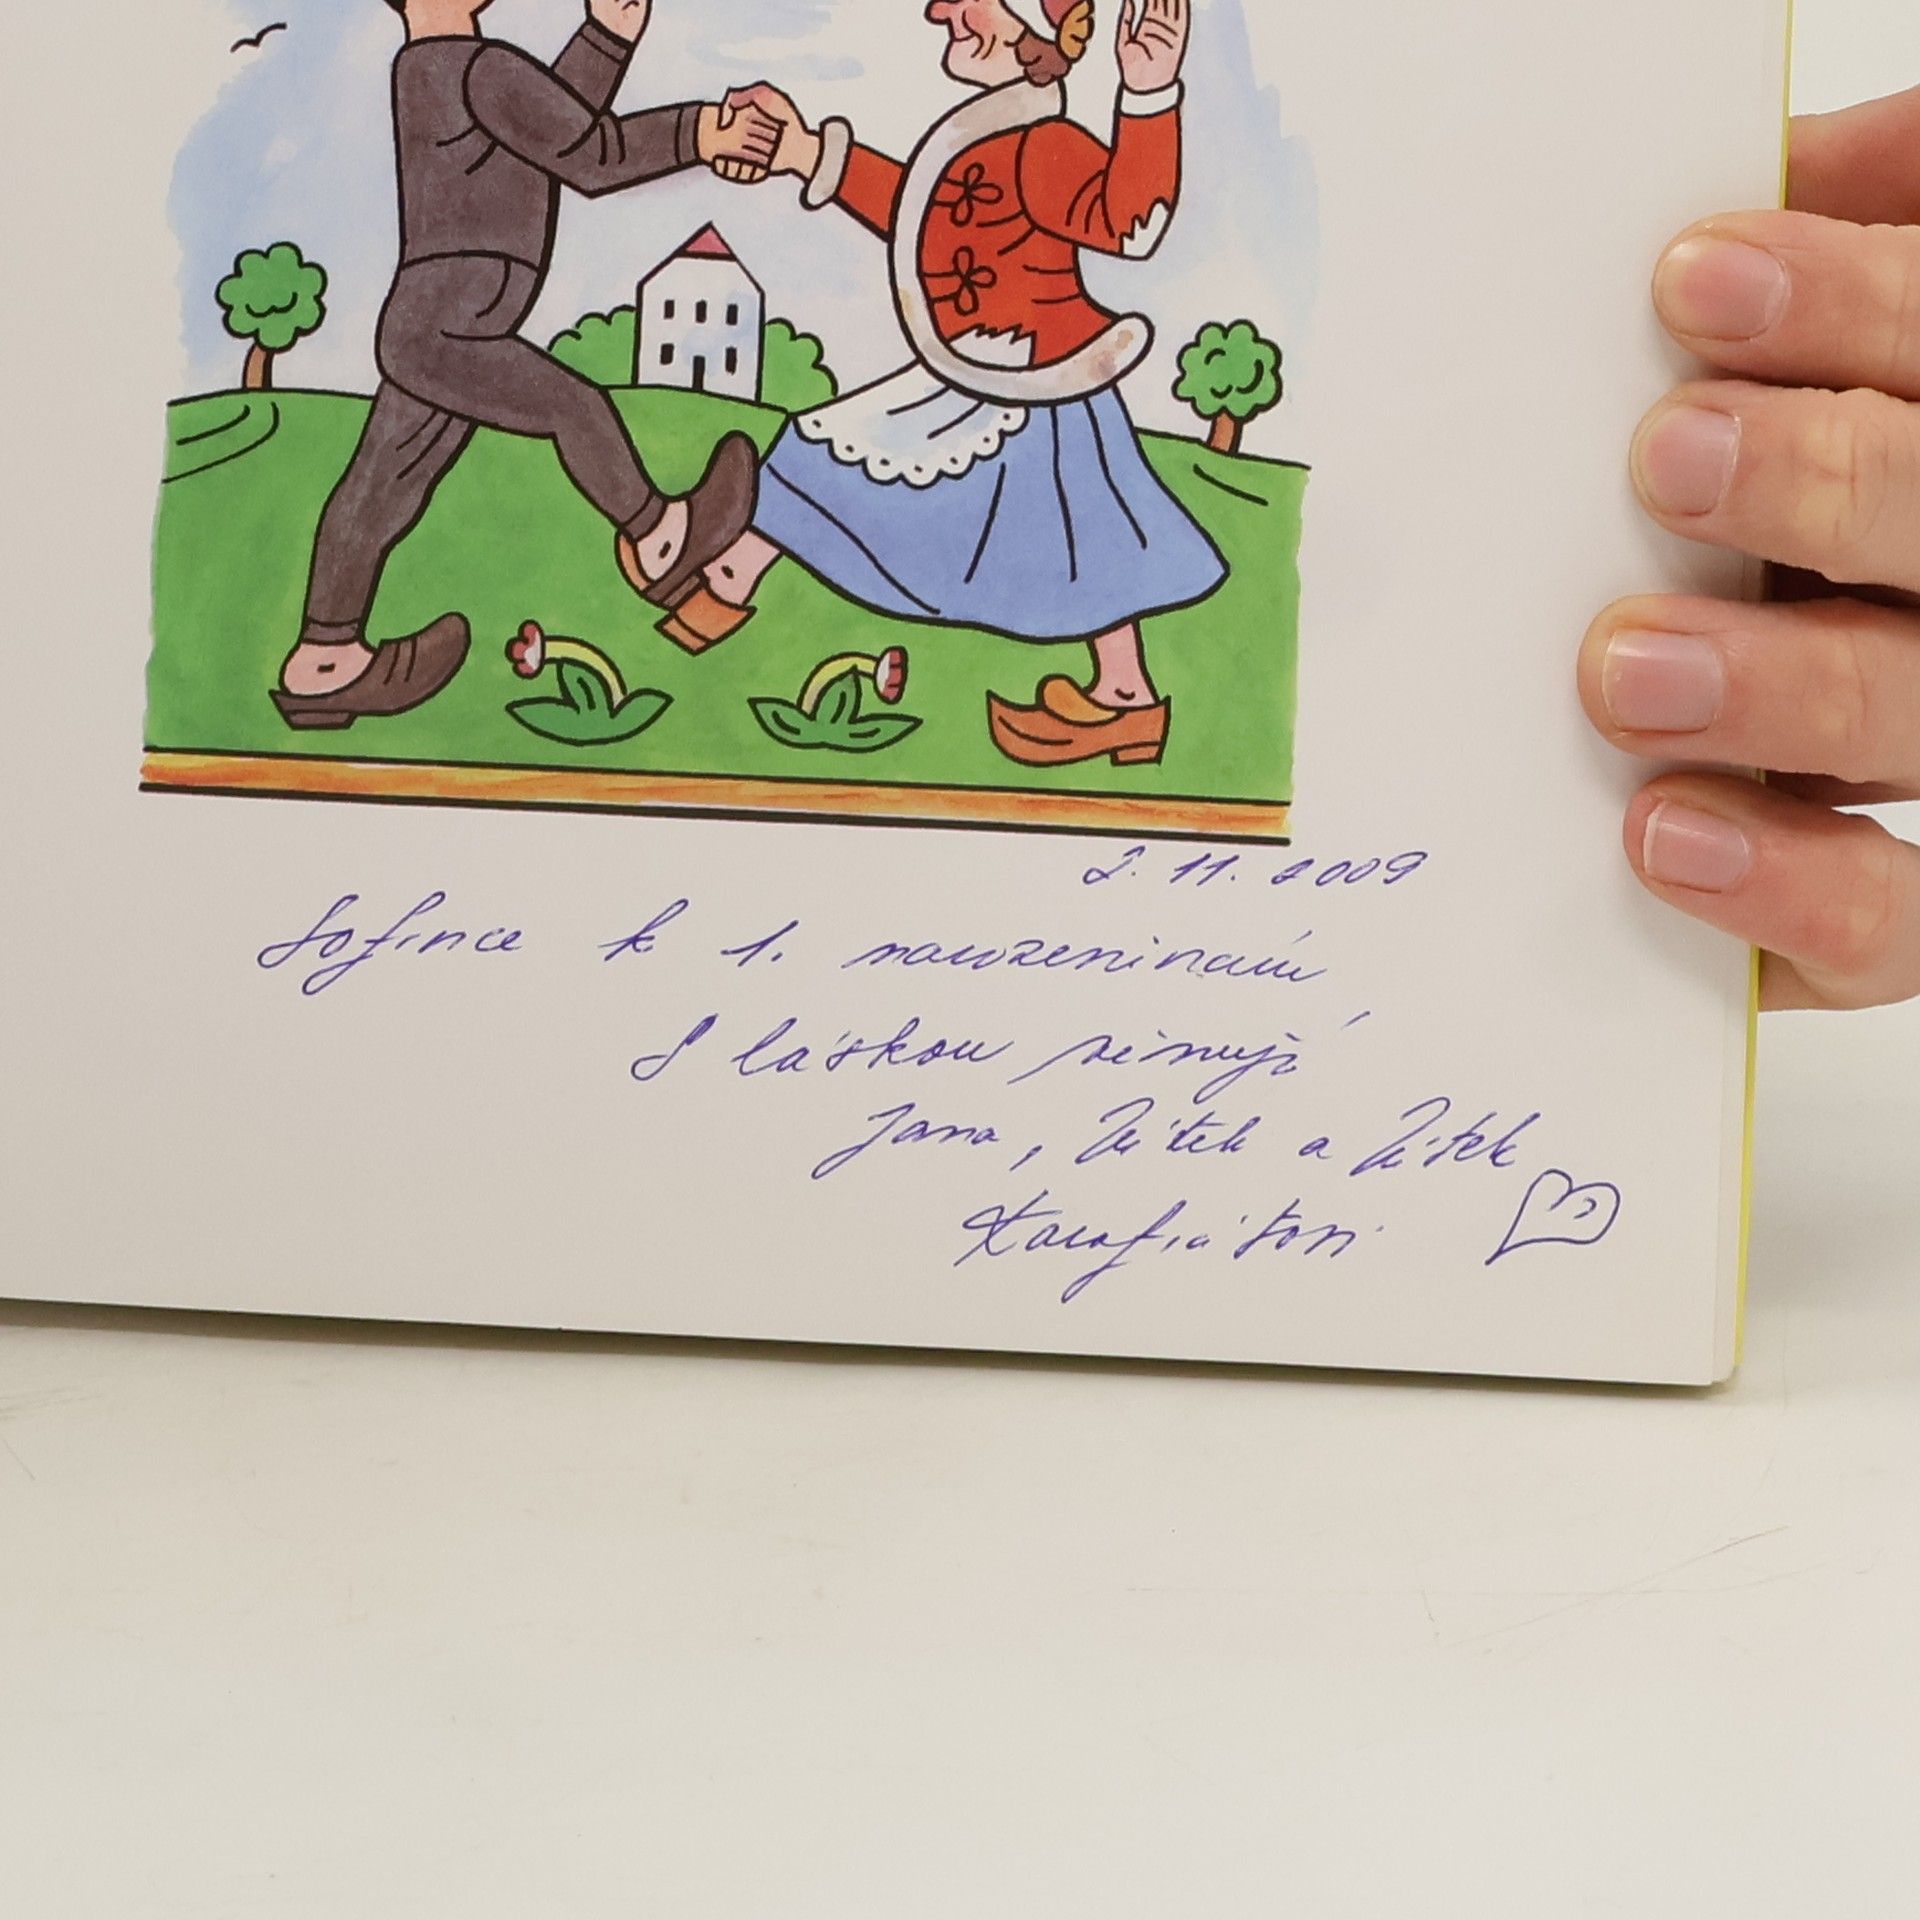 2. 11. 2009
Sofince k 1. narozeninám
S láskou věnují
Jana, Vítek a Vítek
Karafiátovi